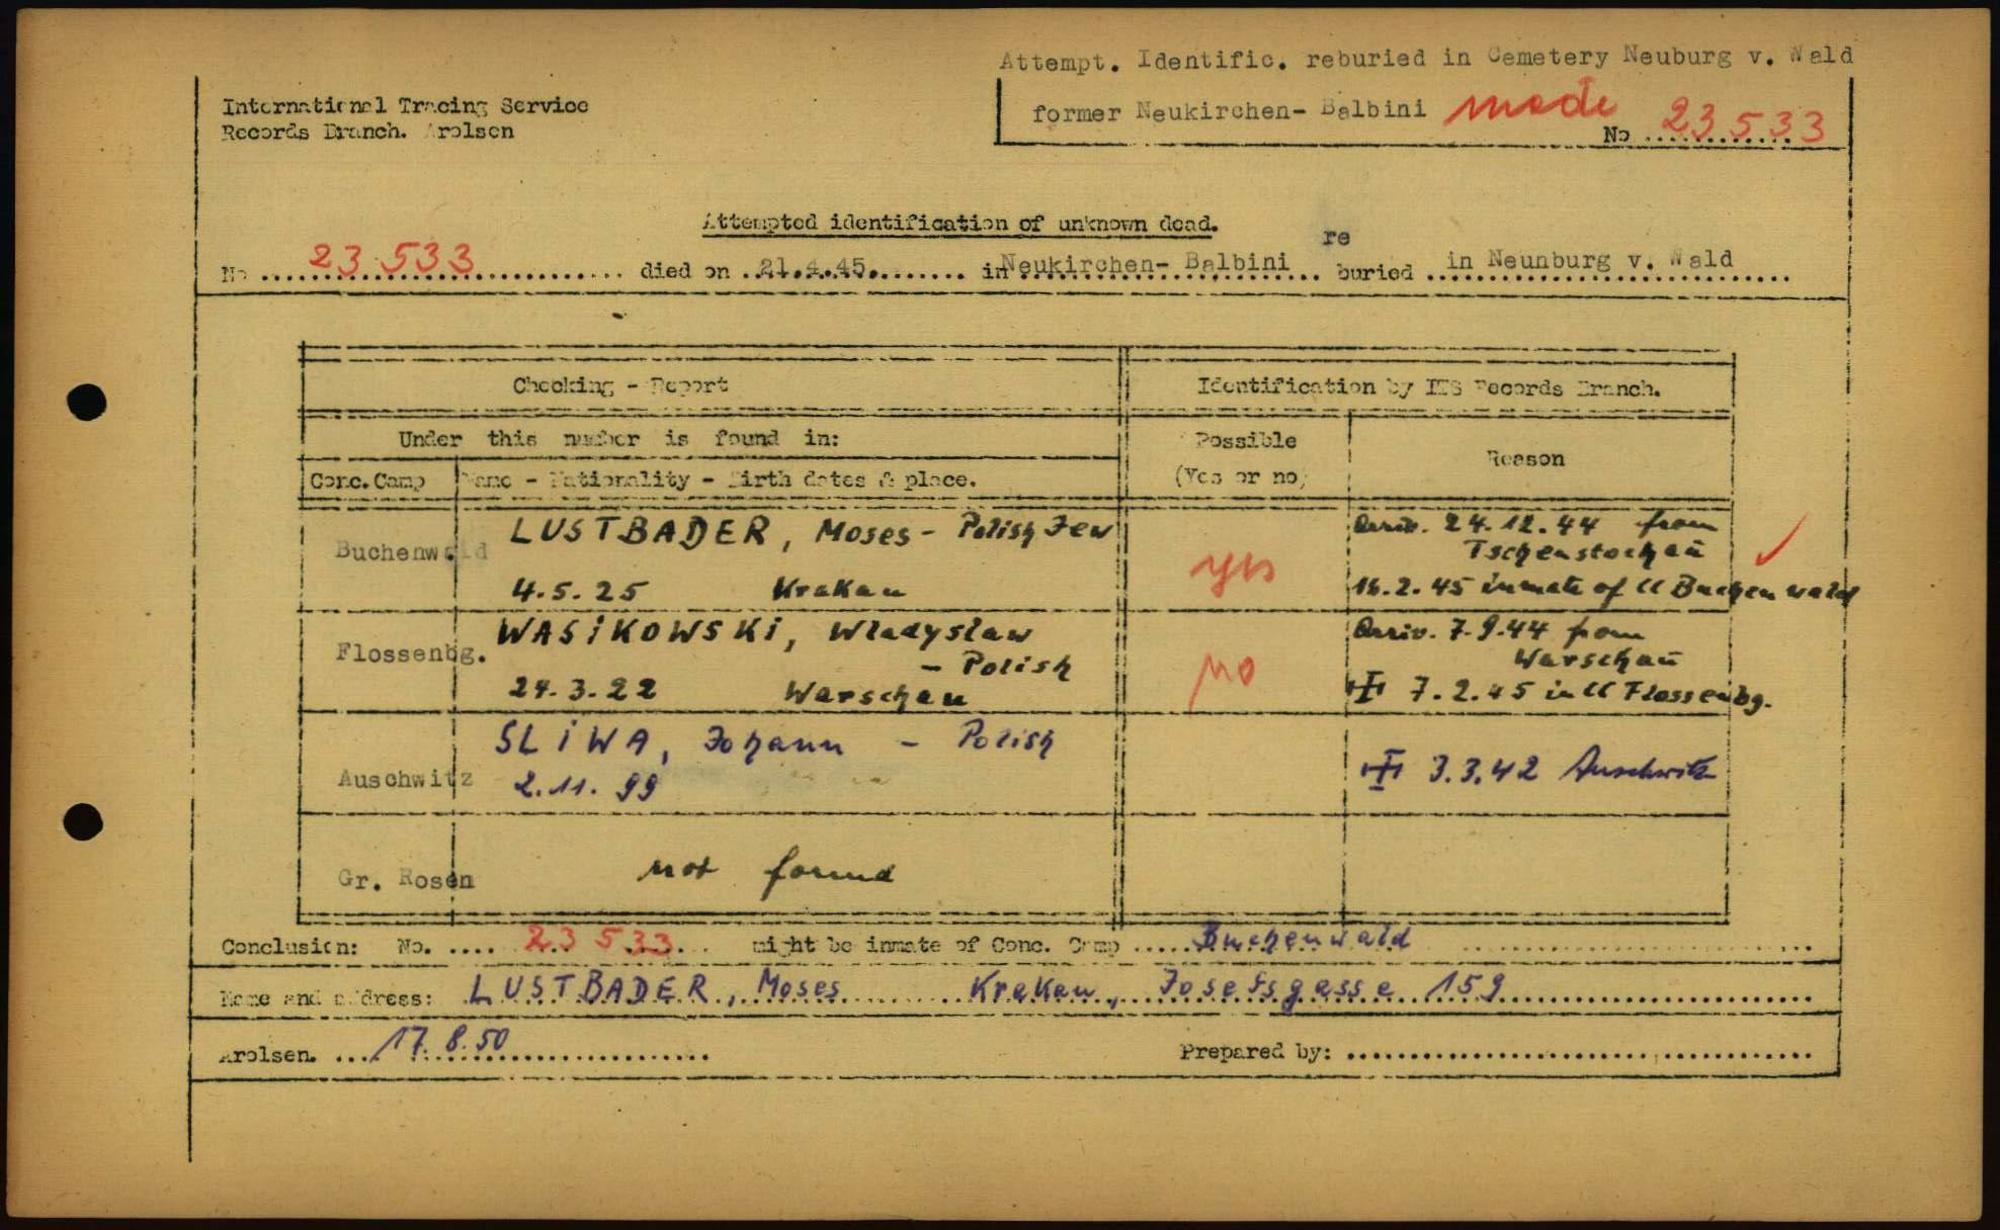 Attempt. Identific. reburied in Cemetery Neuburg v. Wald
International Tracing Service
former Neukirchen- Balbini made
Records Branch. Arolsen
No ............ 23 533
Attempted identification of unknown dead.
No 23 533 died on 21.4.45. in Neukirchen- Balbini re buried in Neunburg v. Wald
Checking - Report
Identification by ITS Records Branch.
Under this number is found in:
Possible
(Yes or no)
Reason
Conc. Camp
Name - Nationality - Birth dates & place.
Buchenwald
LUSTBADER, Moses - Polish Jew
4.5.25 Krakau
yes
Arriv. 24.12.44 from
Tschenstochau
16.2.45 inmate of CC Buchenwald
Flossenbg.
WASIKOWSKI, Wladyslaw
- Polish
24.3.22 Warschau
no
Arriv. 7.9.44 from
Warschau
7.2.45 in CC Flossenbg.
Auschwitz
SLIWA, Johann - Polish
2.11.99
3.3.42 Auschwitz
Gr. Rosen
not found
Conclusion: No. .... 23 533 might be inmate of Conc. Camp ..... Buchenwald
Name and address: LUSTBADER, Moses Krakau, Josefsgasse 159
Arolsen. .... 17.8.50
Prepared by: ........